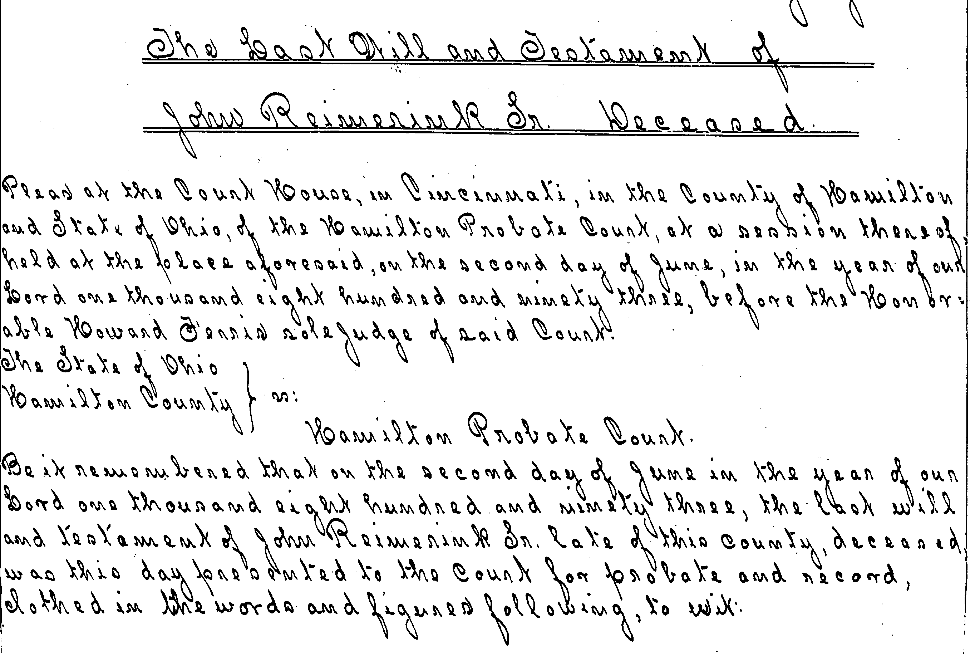 The Last Will and Testament of
John Reimerink Sr. Deceased.
Pleas at the Court House, in Cincinnati, in the County of Hamilton
and State of Ohio, of the Hamilton Probate Court, at a session thereof,
held at the place aforesaid, on the second day of June, in the year of our
Lord one thousand eight hundred and ninety three, before the Honor=
able Howard Ferris sole Judge of said Court.
The State of Ohio
Hamilton County } ss:
Hamilton Probate Court.
Be it remembered that on the second day of June in the year of our
Lord one thousand eight hundred and ninety three, the last will
and testament of John Reimerink Sr. late of this county, deceased,
was this day presented to the Court for probate and record,
clothed in the words and figures following, to wit: